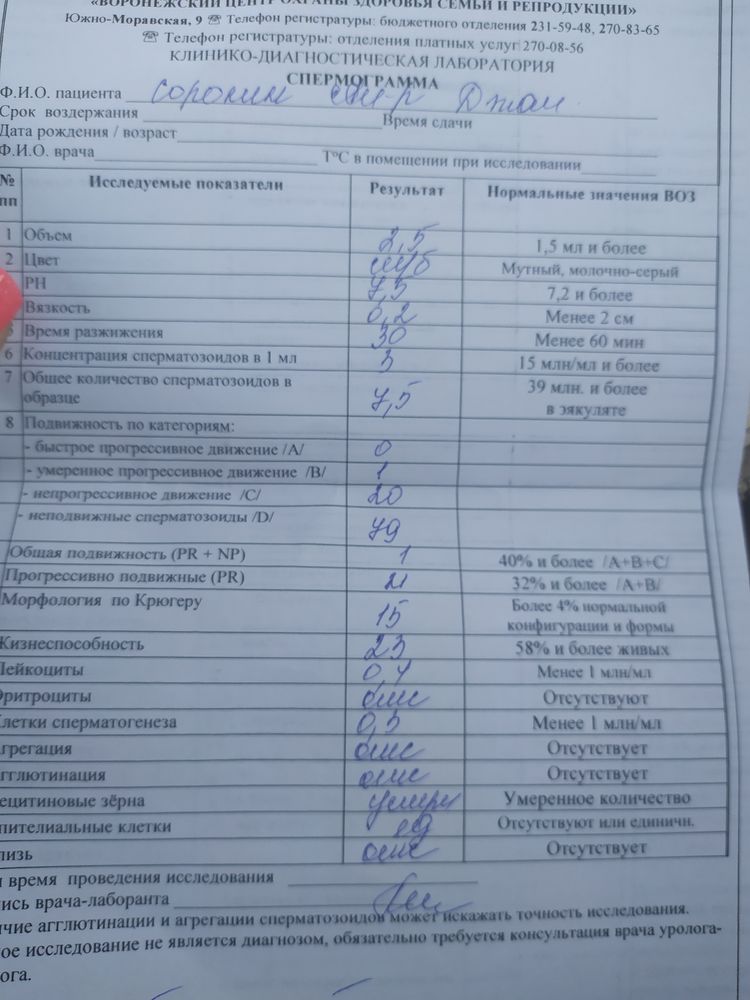 «ВОРОНЕЖСКИЙ ЦЕНТР ОХРАНЫ ЗДОРОВЬЯ СЕМЬИ И РЕПРОДУКЦИИ»
Южно-Моравская, 9 ☏ Телефон регистратуры: бюджетного отделения 231-59-48, 270-83-65
☏ Телефон регистратуры: отделения платных услуг 270-08-56
КЛИНИКО-ДИАГНОСТИЧЕСКАЯ ЛАБОРАТОРИЯ
СПЕРМОГРАММА
Ф.И.О. пациента Сорокин
Срок воздержания Время сдачи
Дата рождения / возраст
Ф.И.О. врача T°C в помещении при исследовании
№ пп Исследуемые показатели Результат Нормальные значения ВОЗ
1 Объем 2,5 1,5 мл и более
2 Цвет Мутный, молочно-серый
PH 7,5 7,2 и более
Вязкость 0,2 Менее 2 см
5 Время разжижения 30 Менее 60 мин
6 Концентрация сперматозоидов в 1 мл 3 15 млн/мл и более
7 Общее количество сперматозоидов в образце 7,5 39 млн. и более в эякуляте
8 Подвижность по категориям:
- быстрое прогрессивное движение /А/ 0
- умеренное прогрессивное движение /В/ 1
- непрогрессивное движение /С/ 20
- неподвижные сперматозоиды /D/ 79
Общая подвижность (PR + NP) 1 40% и более /А+В+С/
Прогрессивно подвижные (PR) 21 32% и более /А+В/
Морфология по Крюгеру 15 Более 4% нормальной конфигурации и формы
Жизнеспособность 23 58% и более живых
Лейкоциты Менее 1 млн/мл
Эритроциты отс Отсутствуют
клетки сперматогенеза 0,5 Менее 1 млн/мл
грегация отс Отсутствует
гглютинация отс Отсутствует
ецитиновые зёрна умерен Умеренное количество
пителиальные клетки ед Отсутствуют или единичн.
лизь отс Отсутствует
и время проведения исследования
пись врача-лаборанта
ичие агглютинации и агрегации сперматозоидов может искажать точность исследования.
ное исследование не является диагнозом, обязательно требуется консультация врача уролога-
ога.